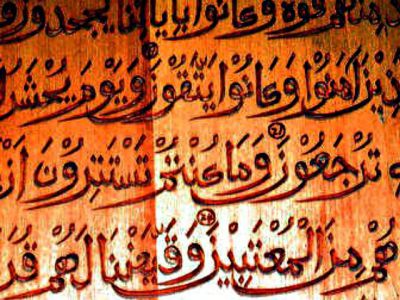 منهم قوة وكانوا بآياتنا يجحدون
ذين آمنوا وكانوا يتقون ويوم يحشر
ه ترجعون ٢١ وما كنتم تستترون أن
هم من المعتبين ٢٤ وقيضنا لهم قر